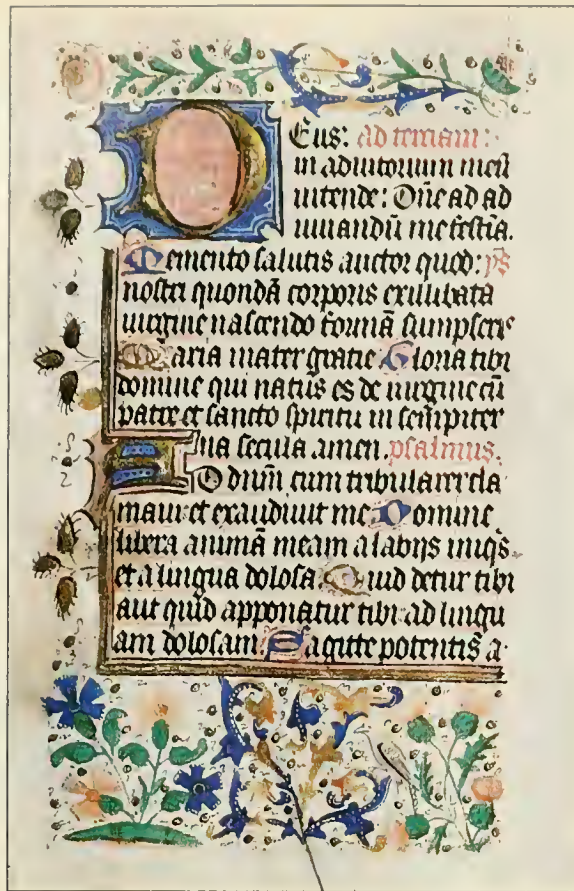 DEus: ad terciam:
in adiutorium meū
intende: Dn̄e ad ad
iuuandū me festīa.
Memento salutis auctor quod: ps̄
nostri quondā corporis ex illibata
uirgine nascendo formā sumpseris
Maria mater gratie Gloria tibi
domine qui natus es de uirgine cū
patre et sancto spiritu in sempiter
na secula amen. psalmus.
AD dnm̄ cum tribularer cla
maui: et exaudiuit me Domine
libera animā meam a labijs iniqs̄
et a lingua dolosa. Quid detur tibi
aut quid apponatur tibi: ad lingu
am dolosam. Sagitte potentis a